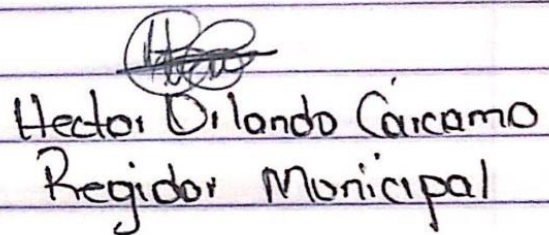 Hector Orlando Cárcamo
Regidor Municipal